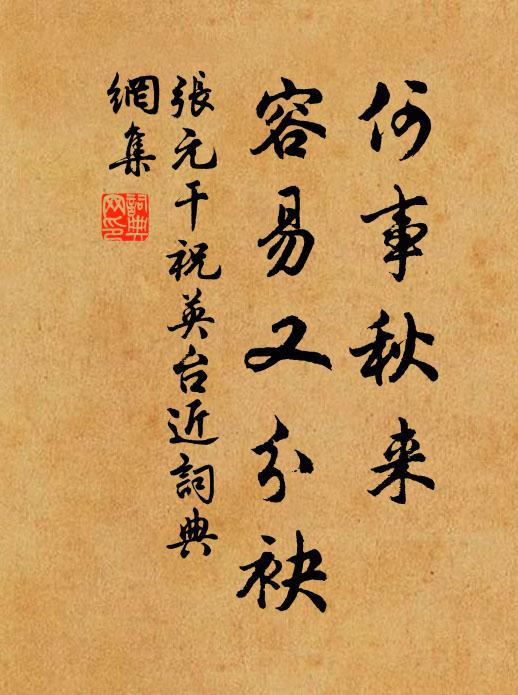 何事秋来
容易又分袂
張元干祝英台近詞典
網集
詞典網印